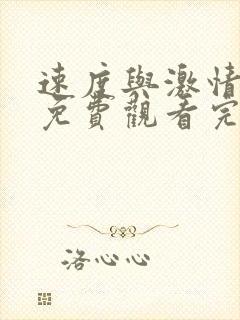 速度與激情
免費觀看完
洛心心